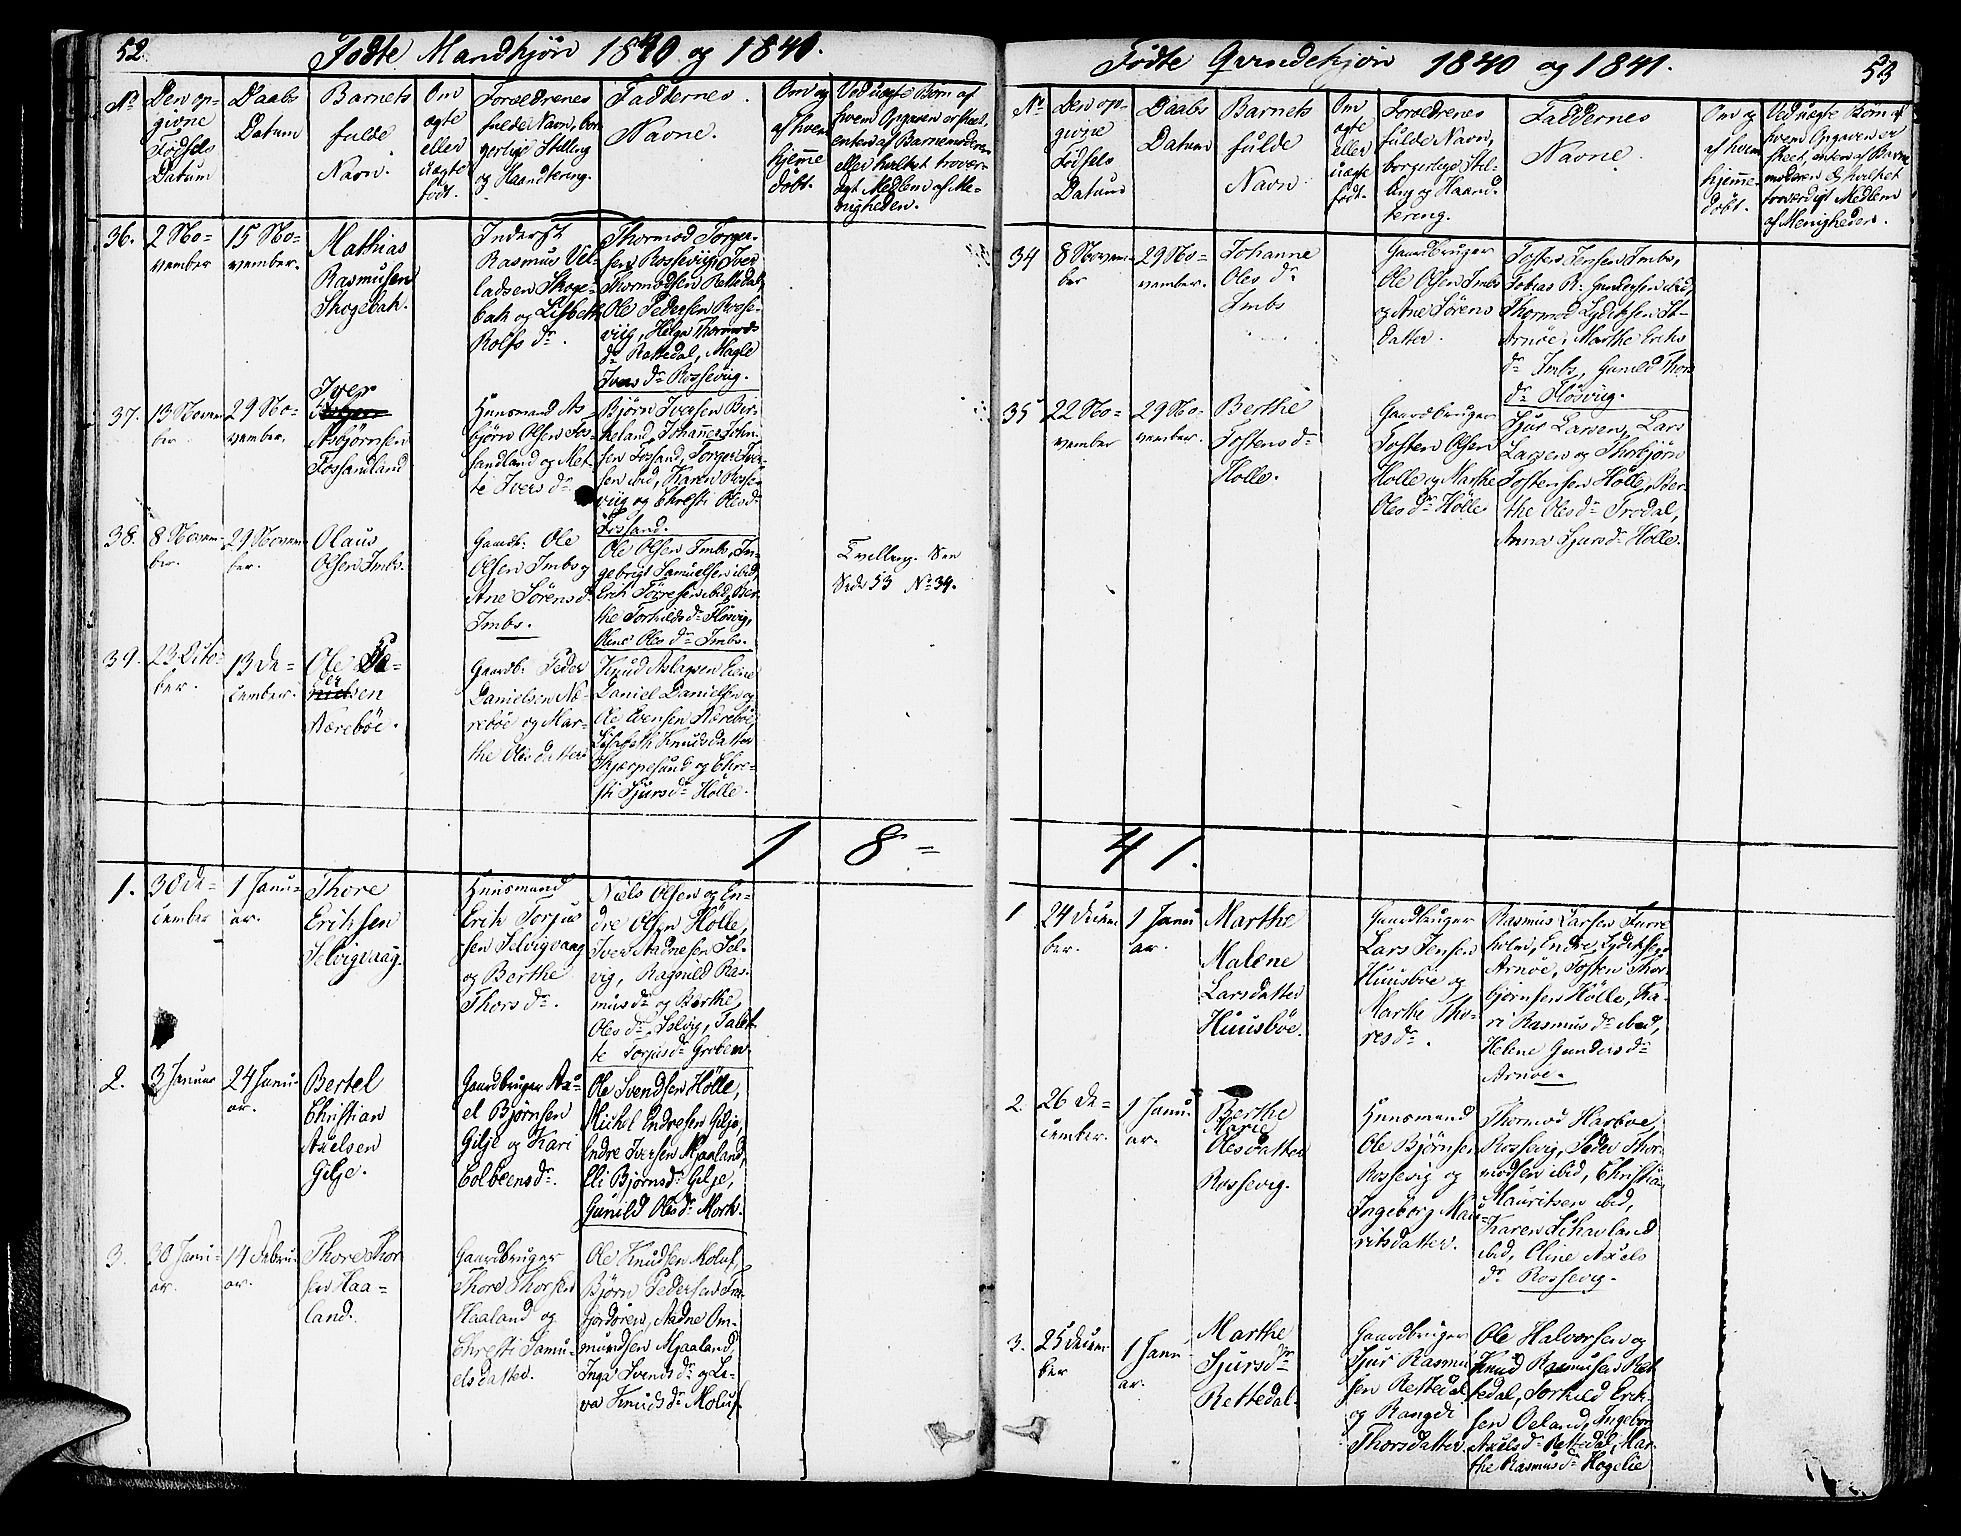 52. Fødte Mandkjøn 1840 og 1841.
No
Den op-
givne
Fødsels
Datum
Daabs
Datum
Barnets
fulde
Navn.
Om
ægte
eller
uægte
født.
Forældrenes
fulde Navn, bor
gerlige Stilling
og Haandtering.
Faddernes
Navne.
Om og
af hvem
hjemme
døbt.
Ved uægte Børn af
hvem Opgaven er skeet,
enten af Barnemoderen
eller hvilket trovær-
digt Medlem af Me-
nigheden.
36.
2 No-
vember
15 No-
vember.
Mathias
Rasmusen
Skogebak.
Inderst
Rasmus Vel-
ladsen Skoge-
bak og Lisbeth
Rolfs dr.
Thormod Torger-
sen Rosseviig, Iver
Thormodsen Rettedal,
Ole Pedersen Rosse-
viig, Helga Thormods
dr Rettedal, Magle
Ivers dr Rossevig.
37.
13 Novem
ber.
29 No-
vember.
Iver
Asbjørnsen
Fossanland
Huusmand As
bjørn Olsen Fos-
sandland og Met-
te Ivers dr
Bjørn Iversen Bir-
keland, Johannes John-
sen Fossand, Torger Iver-
sen ibid, Karen Rosse-
viig og Christi Olesdr
Fossand.
38.
8 Novem-
ber.
29 Novem
ber.
Olaus
Olsen Imbs.
Gaardb: Ole
Olsen Imbs og
Ane Sørensdr
Imbs.
Ole Olsen Imbs, In-
gebrigt Samuelsen ibid,
Erik Torresen ibid, Ber-
the Torkilds dr Fløsvig,
Oline Oles dr Imbs.
Tvilling. See
Side 53 No 34.
39.
23 Octo-
ber.
13 De-
cember.
Ole Pe-
dersen
Nærebøe.
Gaardb: Peder
Danielsen Næ-
rebøe og Mar-
the Olesdatter
Knud Aslagsen Eene
Daniel Danielsen og
Ole Evensen Nærebøe,
Lisabeth Knudsdatter
Kjærpesund og Chri-
sti Sjurs dr Hølle.
1 8 =
1.
30 De-
cember
1 Janu-
ar.
Thore
Erichsen
Selvigvaag.
Huusmand
Erik Torjus
sen Selvigvaag
og Berthe
Thors dr.
Niels Olsen og En-
dre Olsen Hølle,
Iver Aadnesen Sel-
vig, Ragnild Ras-
mus dr og Berthe
Oles dr Selvig, Talet-
te Torjus dr Groben.
2.
3 Januar
24 Janu-
ar.
Bertel
Christian
Axelsen
Gilje.
Gaardbruger Ax-
el Bjørnsen
Gilje og Kari
Colbeensdr.
Ole Svendsen Hølle,
Michel Endresen Gilje,
Endre Iversen Mjaaland,
Eli Bjørnsdr Gilje,
Gunild Olesdr Mork.
3.
30 Janu-
ar.
14 Febru-
ar.
Thore Thor
sen Haa-
land.
Gaardbruger
Thore Thorsen
Haaland og
Christi Samu-
elsdatter.
Ole Knudsen Moluf,
Bjørn Pedersen Fra-
fjordøren, Aadne Om-
mundsen Mjaaland,
Inga Svends dr og Le-
va Knuds dr Moluf.
Fødte Qvindekjøn 1840 og 1841. 53
No
Den op-
givne
Fødsels
Datum
Daabs
Datum
Barnets
fulde
Navn.
Om
ægte
eller
uægte
født.
Forældrenes
fulde Navn,
borgerlige Stil-
ling og Haand-
tering.
Faddernes
Navne.
Om og
af hvem
hjemme-
døbt.
Ved uægte Børn af
hvem Opgaven er
skeet, enten af Barne
moderen el. hvilket
troværdigt Medlem
af Menigheden.
34
8 Novem-
ber
29 No-
vember.
Johanne
Oles dr
Imbs
Gaardbruger
Ole Olsen Imbs
og Ane Sørens
Datter.
Tosten Jensen Imbs,
Tobias R. Gundersen ibid,
Thormod Lydiksen St-
Arnøe, Marthe Eriks
dr Imbs, Gunild Thors
dr Fløsviig.
35
22 No-
vember
29 No-
vember.
Berthe
Tostens dr
Holle.
Gaardbruger
Tosten Olsen
Holle og Marthe
Oles dr Hölle
Sjur Larsen, Lars
Larsen og Thorbjørn
Tostensen Hölle, Ber-
the Oles dr Frodal,
Anna Sjurs dr Holle.
41.
1
24 Decem
ber.
1 Janu
ar.
Marthe
Malene
Larsdatter
Huusböe.
Gaardbruger
Lars Jensen
Huusböe og
Marthe Tho-
res dr.
Rasmus Larsen Furre
holm, Endre Lydiksen
Arnøe, Tosten Thor-
bjørnsen Hölle, Ka-
ri Rasmus dr ibid,
Helene Gunders dr
Arnøe.
2.
26 De-
cember.
1 Janu-
ar.
Berthe
Marie
Olesdatter
Rossevig.
Huusmand
Ole Bjørnsen
Rossevig og
Ingeborg Mau-
ritsdatter.
Thormod Harboe
Rossevig, Peder Thor-
modsen ibid, Christian
Mauritsen ibid,
Karen Schavland
ibid, Eline Axels
dr Rossevig.
3.
25 Decem
ber
1 Janu-
ar.
Marthe
Sjursdr
Rettedal.
Gaardbruger
Sjur Rasmu
sen Rettedal
og Rangdi
Thorsdatter.
Ole Halvorsen og
Knud Rasmusen Ret-
tedal, Torkild Erik-
sen Oeland, Ingebor
Axelsdr Rettedal, Mar-
the Rasmusdr Hogelie